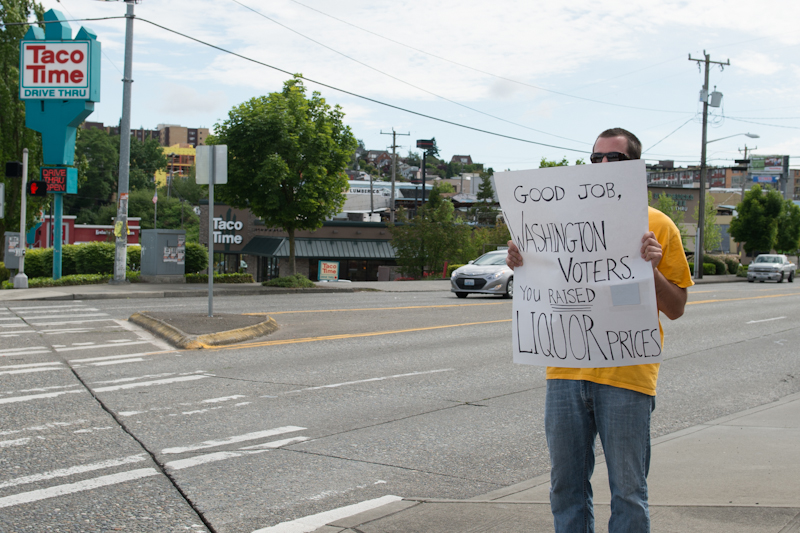 Taco
Time
DRIVE THRU
DRIVE
THRU
OPEN
Taco
Time
GOOD JOB,
WASHINGTON
VOTERS.
YOU RAISED
LIQUOR PRICES